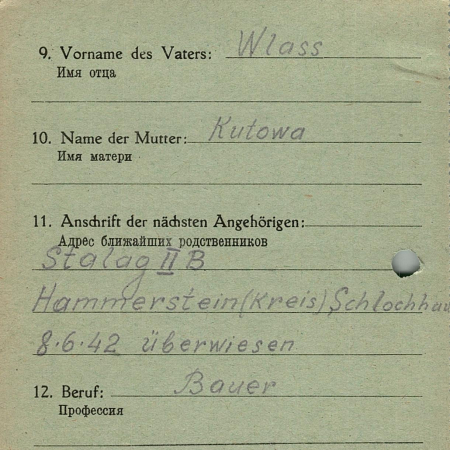 9. Vorname des Vaters: Wlass
Имя отца
10. Name der Mutter: Kutowa
Имя матери
11. Anschrift der nächsten Angehörigen:
Адрес ближайших родственников
Stalag II B
Hammerstein (Kreis) Schlochhau
8.6.42 überwiesen
12. Beruf: Bauer
Профессия